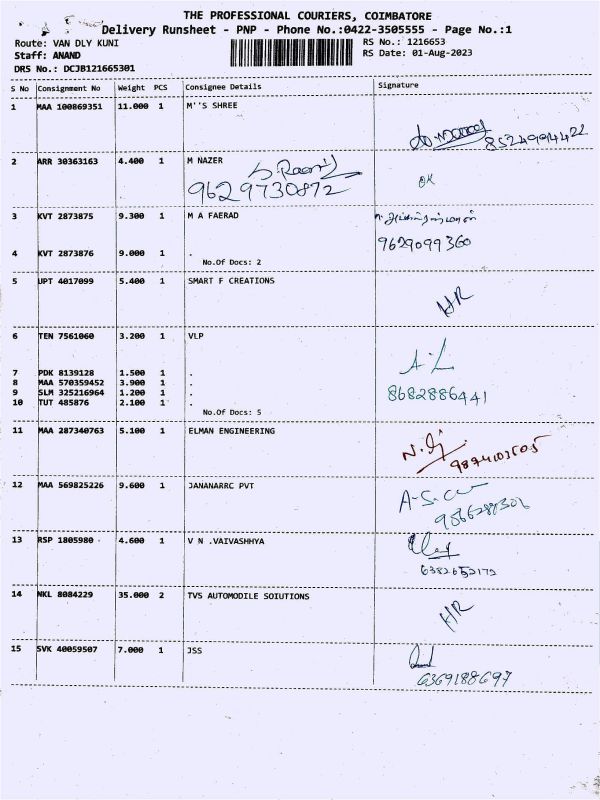 THE PROFESSIONAL COURIERS, COIMBATORE
Delivery Runsheet - PNP - Phone No.:0422-3505555 - Page No.:1
Route: VAN DLY KUNI RS No.: 1216653
Staff: ANAND RS Date: 01-Aug-2023
DRS No.: DCJB121665301
S No Consignment No Weight PCS Consignee Details Signature
1 MAA 100869351 11.000 1 M''S SHREE
2 ARR 30363163 4.400 1 M NAZER
9629730872 OK
3 KVT 2873875 9.300 1 M A FAERAD
9629099360
4 KVT 2873876 9.000 1 .
No.Of Docs: 2
5 UPT 4017099 5.400 1 SMART F CREATIONS
HR
6 TEN 7561060 3.200 1 VLP
7 PDK 8139128 1.500 1 .
8 MAA 570359452 3.900 1 .
9 SLM 325216964 1.200 1 .
8682886441
10 TUT 485876 2.100 1 .
No.Of Docs: 5
11 MAA 287340763 5.100 1 ELMAN ENGINEERING
12 MAA 569825226 9.600 1 JANANARRC PVT
13 RSP 1805980 4.600 1 V N .VAIVASHHYA
6382652172
14 NKL 8084229 35.000 2 TVS AUTOMODILE SOIUTIONS
HR
15 SVK 40059507 7.000 1 JSS
6369188697